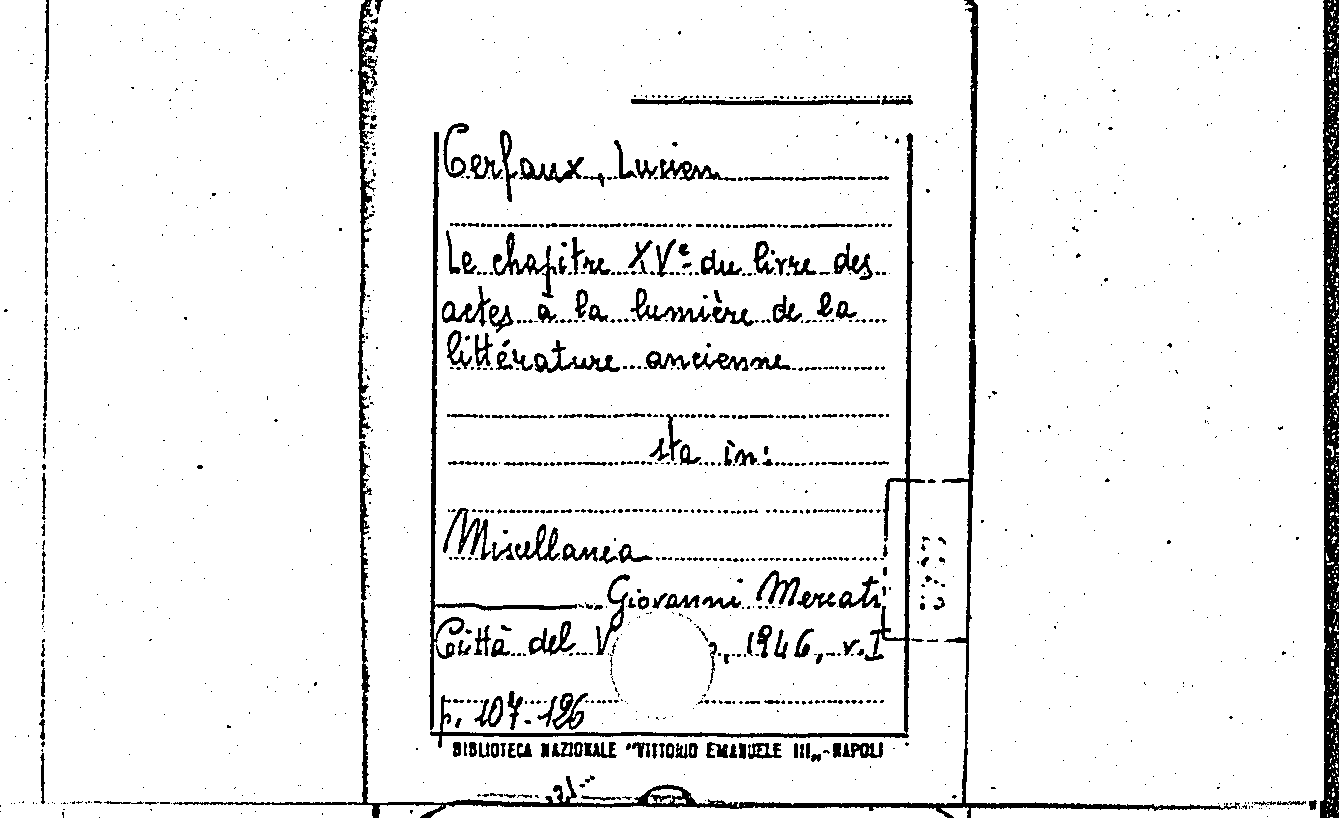 Cerfaux, Lucien
Le chapitre XVe du livre des
actes à la lumière de la
littérature ancienne
sta in:
Miscellanea
Giovanni Mercati
Città del V , 1946, v. I
p. 107-126
BIBLIOTECA NAZIONALE "VITTORIO EMANUELE III„-NAPOLI